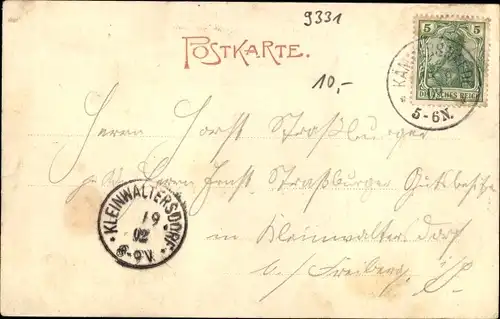 9331
POSTKARTE.
10,-
5 5
DEUTSCHES REICH
5-6N.
Herrn Horst Straßburger
Herrn Ernst Straßburger Gutsbesitzer
in Kleinwaltersdorf
b/ Freiberg i/S
KLEINWALTERSDORF
19
02
6-9V.